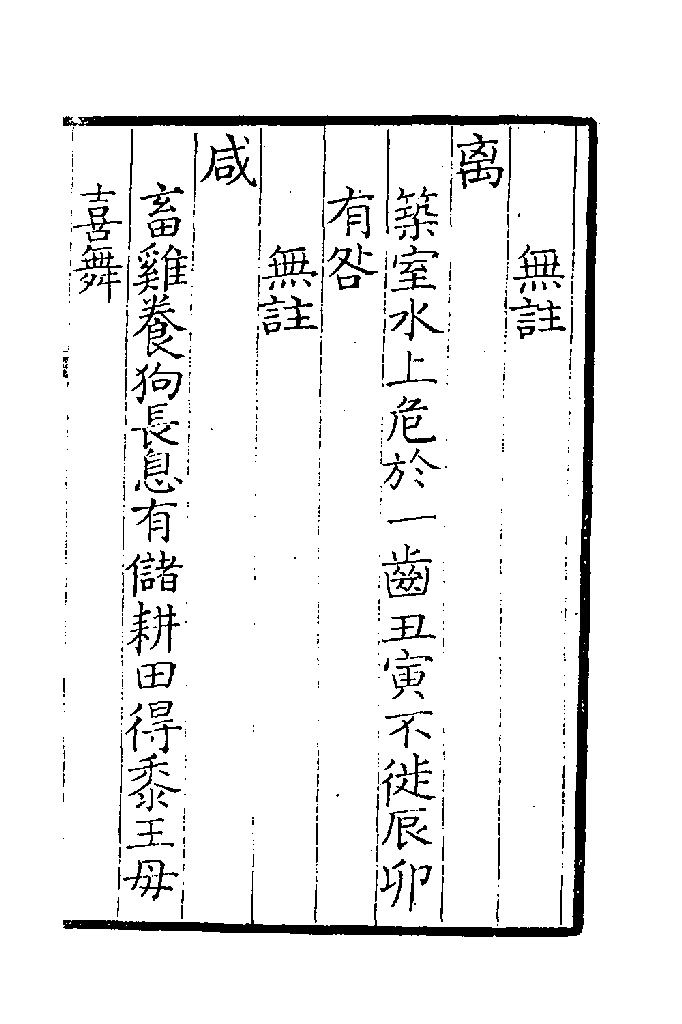 無註
离
築室水上危於一齒丑寅不徙辰卯
有咎
無註
咸
畜雞養狗長息有儲耕田得黍王母
喜舞